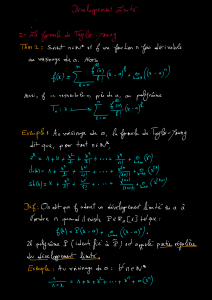 Développement limité
2- La formule de Taylor-Young
Thm 2 : Soient n∈ℕ* et f une fonction n fois dérivable
au voisinage de a. Alors
f(x) = Σ f^(k)(a)/k! (x-a)^k + o((x-a)^n)
Ainsi, f ressemble, près de a, au polynôme
T_n : x ↦ Σ f^(k)(a)/k! (x-a)^k
Exemple : Au voisinage de 0, la formule de Taylor-Young
dit que, pour tout n∈ℕ*,
e^x = 1 + x + x²/2! + x³/3! + ... + x^n/n! + o(x^n)
Def : On dit que f admet un développement limité en a à
l'ordre n quand il existe P∈ℝ_n[X] tel que :
f(x) = P(x-a) + o((x-a)^n)
Le polynôme P (identifié à P) est appelé partie régulière
du développement limité.
Exemple : Au voisinage de 0 : ∀n∈ℕ*
1/(1-x) = 1 + x + x² + ... + x^n + o(x^n)